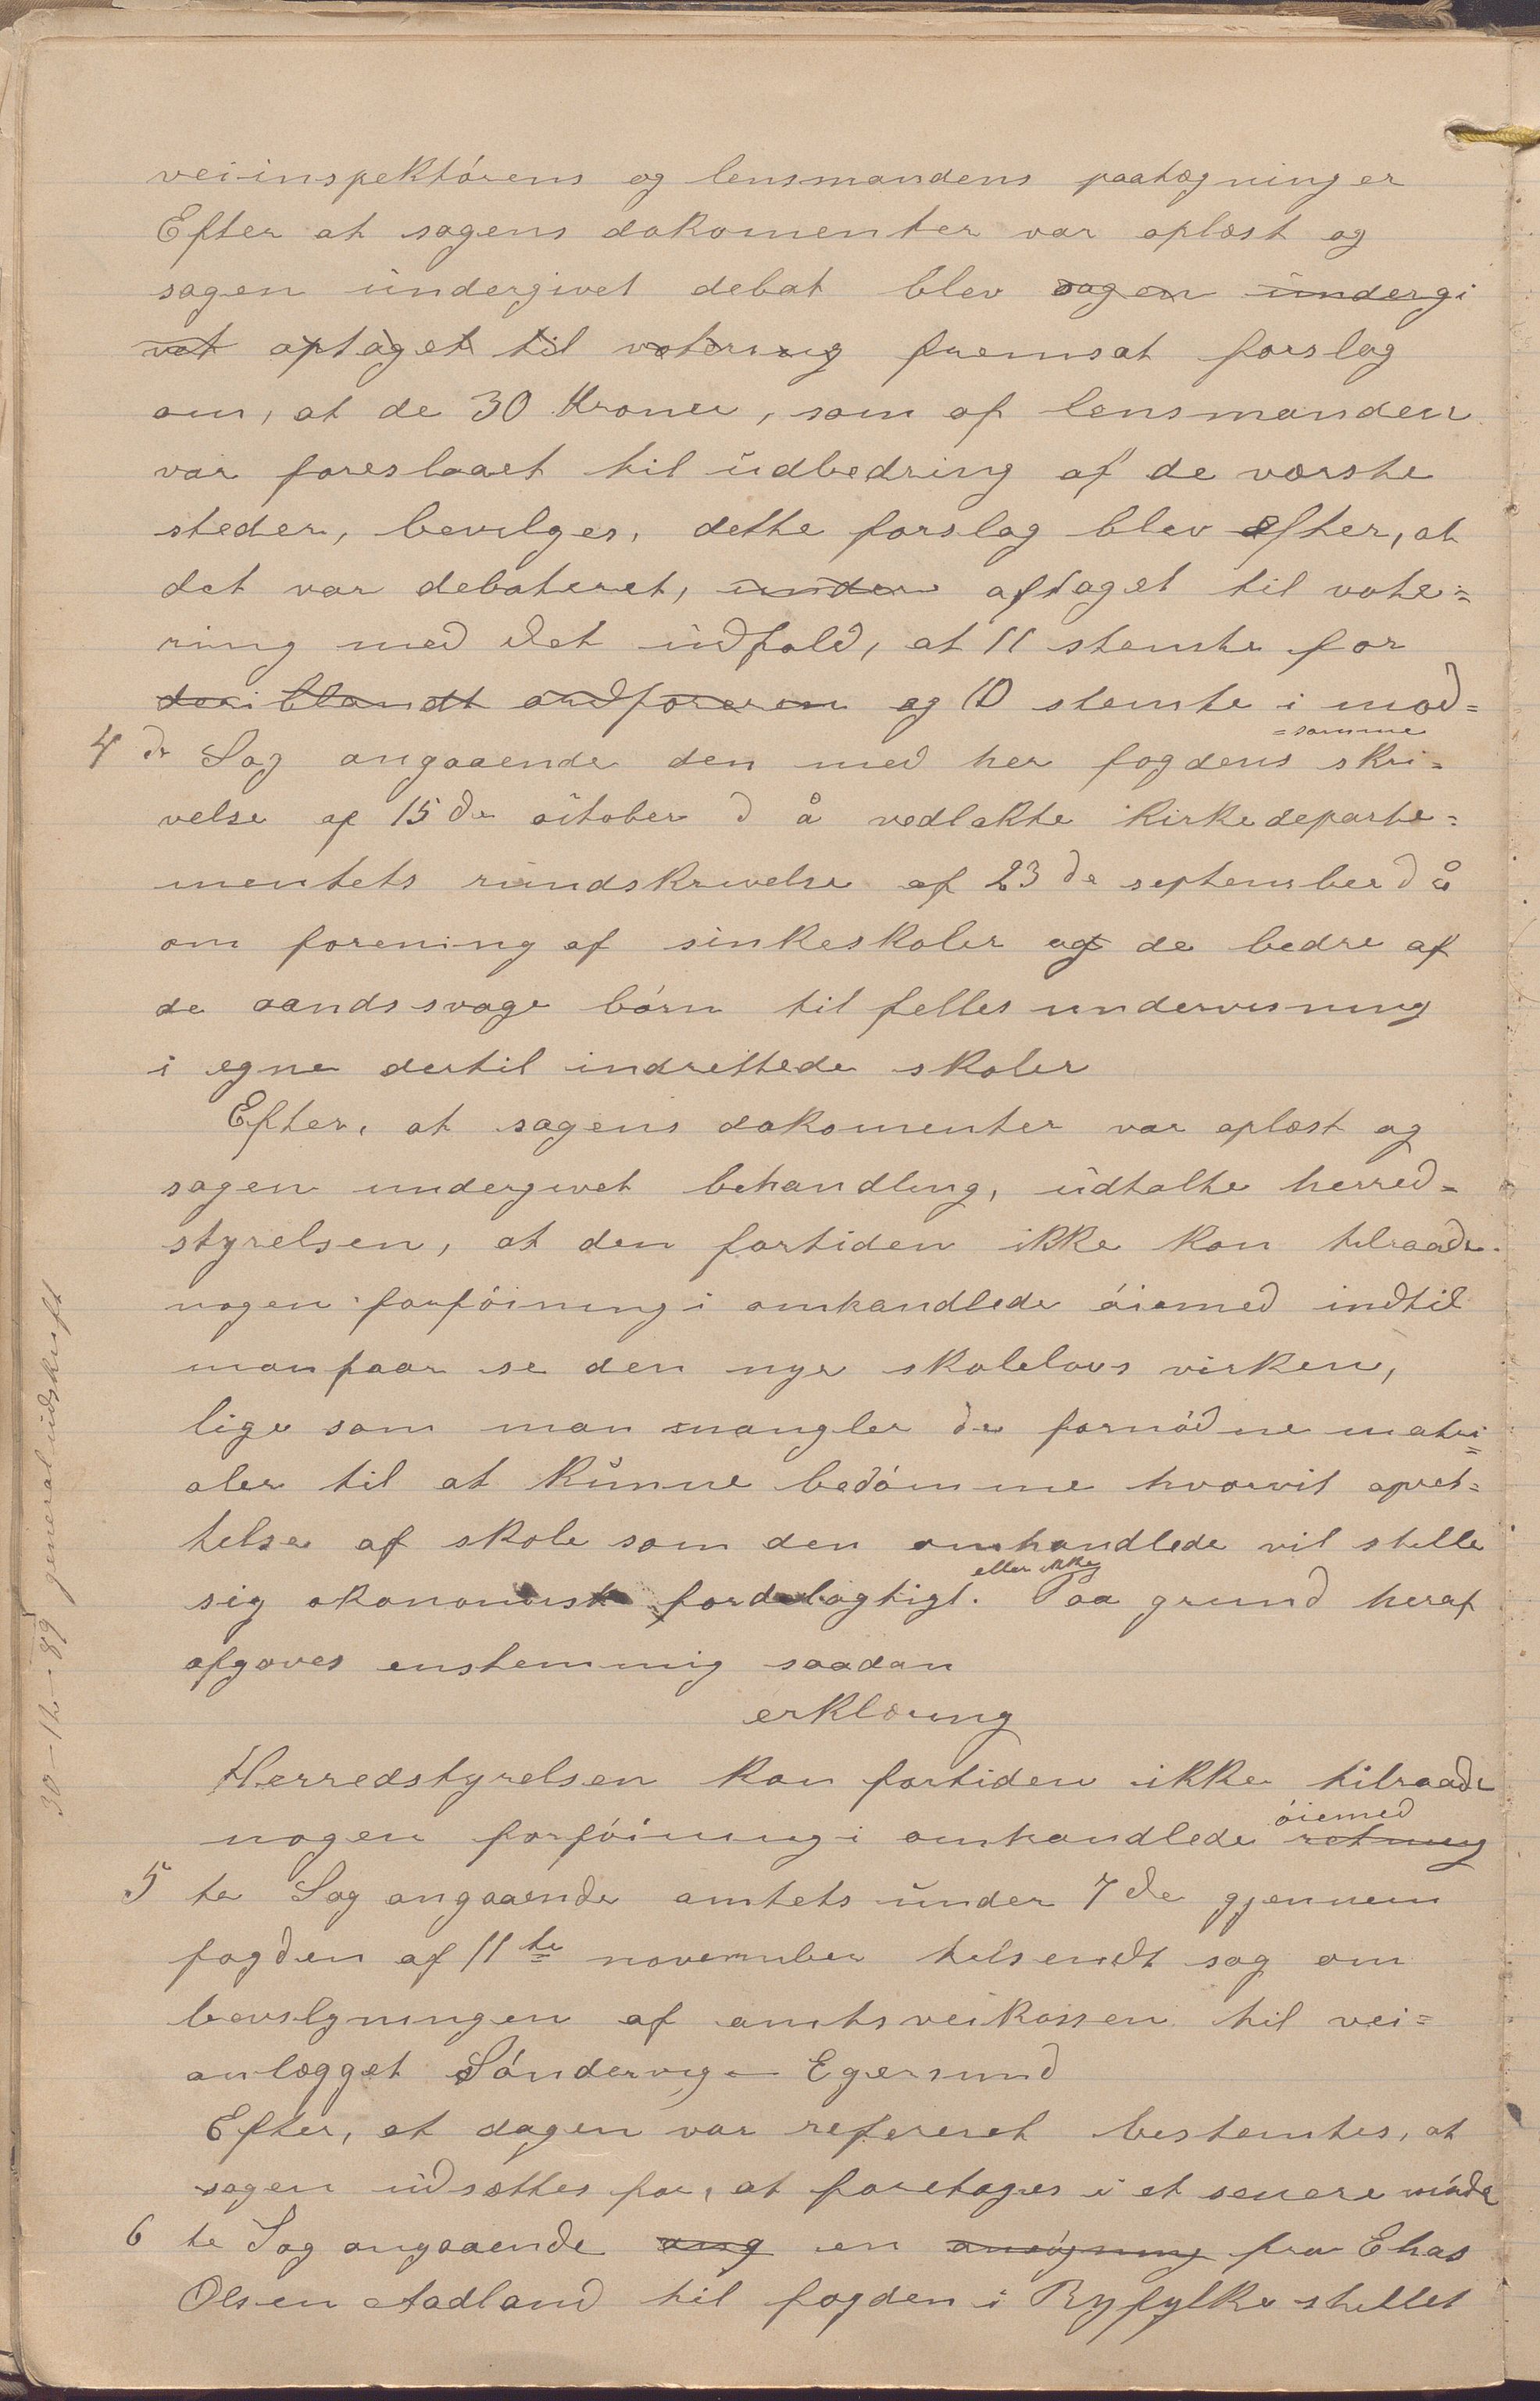 veiinspektórens og lensmandens paategninger
Efter at sagens dokomenter var oplæst og
sagen undergivet debat blev sagen undergi
vet optaget til votering fremsat forslag
om, at de 30 Kroner, som af lensmanden
var foreslaaet til udbedring af de værste
steder, bevilges, dette forslag blev efter, at
det var debateret, under aftaget til vote=
ring med det udfald, at 11 stemte for
deriblandt ordføreren og 10 stemte i mod=
=samme
4 de Sag angaaende den med her fogdens skri=
velse af 15 de october d å vedlakte kirkedeparte=
mentets rundskrivelse af 23 de september d å
om forening af sinkeskoler og de bedre af
de aandssvage börn til felles undervisning
i egne dertil indrettede skoler
Efter, at sagens dokomenter var oplæst og
sagen undergivet behandling, udtalte herred=
styrelsen, at den fortiden ikke kan tilraade
nogen forföining i omhandlede öiemed indtil
man faar se den nye skolelovs virken,
lige som man mangler de fornödne matri=
aler til at kunne bedömme hvorvit opret=
telse af skole som den omhandlede vil stelle
sig økonomisk fordelagtigt eller ikke. Paa grund heraf
afgaves enstemmig saadan
erklæring
Herredstyrelsen kan fortiden ikke tilraade
nogen forföining i omhandlede retning öiemed
5 te Sag angaaende amtets under 7 de gjennem
fogden af 11 te november tilsendt sag om
bevilgningen af amtsveikassen til vei=
anlægget Söndervig - Egersund
Efter, at dagen var refereret bestemtes, at
sagen udsættes for, at foretages i et senere möde
6 te Sag angaaende ang en ansögning fra Elias
Olsen Aadland til fogden i Ryfylke stellet
30-12-89 generaludskrift